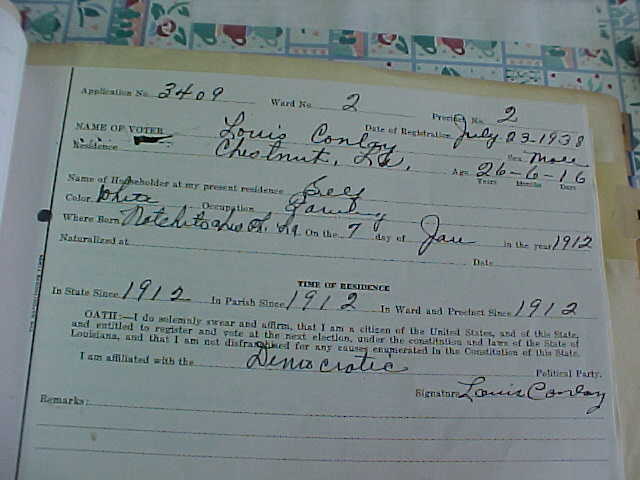 Application No. 3409 Ward No. 2 Precinct No. 2
Date of Registration July 23-1938
NAME OF VOTER Louis Conlay Sex Male
Residence Chestnut, La. Age 26-6-16
Years Months Days
Name of Householder at my present residence Self
Color White Occupation Farming
Where Born Natchitoches Ph. La On the 7 day of Jan in the year 1912
Naturalized at Date
TIME OF RESIDENCE
In State Since 1912 In Parish Since 1912 In Ward and Precinct Since 1912
OATH:—I do solemnly swear and affirm, that I am a citizen of the United States, and of this State,
and entitled to register and vote at the next election, under the constitution and laws of the State of
Louisiana, and that I am not disfranchised for any causes enumerated in the Constitution of this State.
I am affiliated with the Democratic Political Party.
Signature Louis Conlay
Remarks: